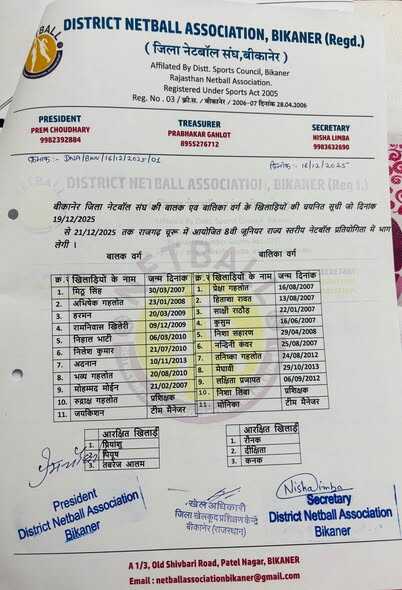 DISTRICT NETBALL ASSOCIATION, BIKANER (Regd.)
( जिला नेटबॉल संघ,बीकानेर )
Affilated By Distt. Sports Council, Bikaner
Rajasthan Netball Association.
Registered Under Sports Act 2005
Reg. No . 03 / क्री.स. / बीकानेर / 2006-07 दिनांक 28.04.2006
PRESIDENT TREASURER SECRETARY
PREM CHOUDHARY PRABHAKAR GAHLOT NISHA LIMBA
9982392884 8955276712 9983632690
क्रमांक :- DNA/BKN/16/12/2025/01 दिनांक :- 16/12/2025
बीकानेर जिला नेटबॉल संघ की बालक एव बालिका वर्ग के खिलाड़ियों की चयनित सूची जो दिनांक
19/12/2025
से 21/12/2025 तक राजगढ़ चूरू में आयोजित 8वी जूनियर राज्य स्तरीय नेटबॉल प्रतियोगिता में भाग
लेगी ।
बालक वर्ग बालिका वर्ग
क्र.स खिलाड़ियों के नाम जन्म दिनांक क्र.स खिलाड़ियों के नाम जन्म दिनांक
1. मिठू सिंह 30/03/2007 1. प्रेक्षा गहलोत 16/08/2007
2. अभिषेक गहलोत 23/01/2008 2. हिताषा रावत 13/08/2007
3. हरमन 20/03/2009 3. साक्षी राठौड़ 22/01/2007
4. रामनिवास खिलेरी 09/12/2009 4. कुसुम 16/06/2007
5. निहाल भाटी 06/03/2010 5. निशा सहारण 29/04/2008
6. निलेश कुमार 21/07/2010 6. नन्दिनी कंवर 25/08/2007
7. अदनान 10/11/2013 7. तनिष्का गहलोत 24/08/2012
8. भव्य गहलोत 20/08/2010 8. मेघावी 29/10/2013
9. मोहम्मद मोईन 21/02/2007 9. लक्षिता प्रजापत 06/09/2012
10. रुद्राक्ष गहलोत प्रशिक्षक 10. निशा लिंबा प्रशिक्षक
11. जयकिशन टीम मैनेजर 11. मोनिका टीम मैनेजर
आरक्षित खिलाड़ी आरक्षित खिलाड़ी
1. प्रियांशु 1. रौनक
पियूष 2. दीक्षिता
3. तबरेज आलम 3. कनक
President
District Netball Association
Bikaner
खेल अधिकारी
जिला खेलकूद प्रशिक्षण केन्द्र
बीकानेर (राजस्थान)
Nisha Limba
Secretary
District Netball Association
Bikaner
A 1/3, Old Shivbari Road, Patel Nagar, BIKANER
Email : netballassociationbikaner@gmail.com